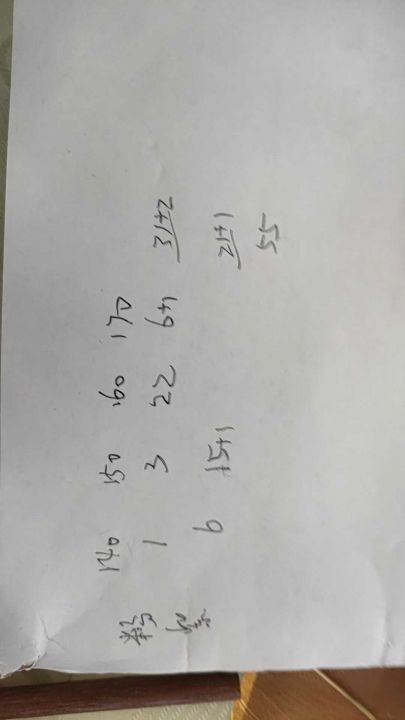 140 150 160 170
粉 1 3 22 6+1 31+2
紫 6 15+1 21+1
55